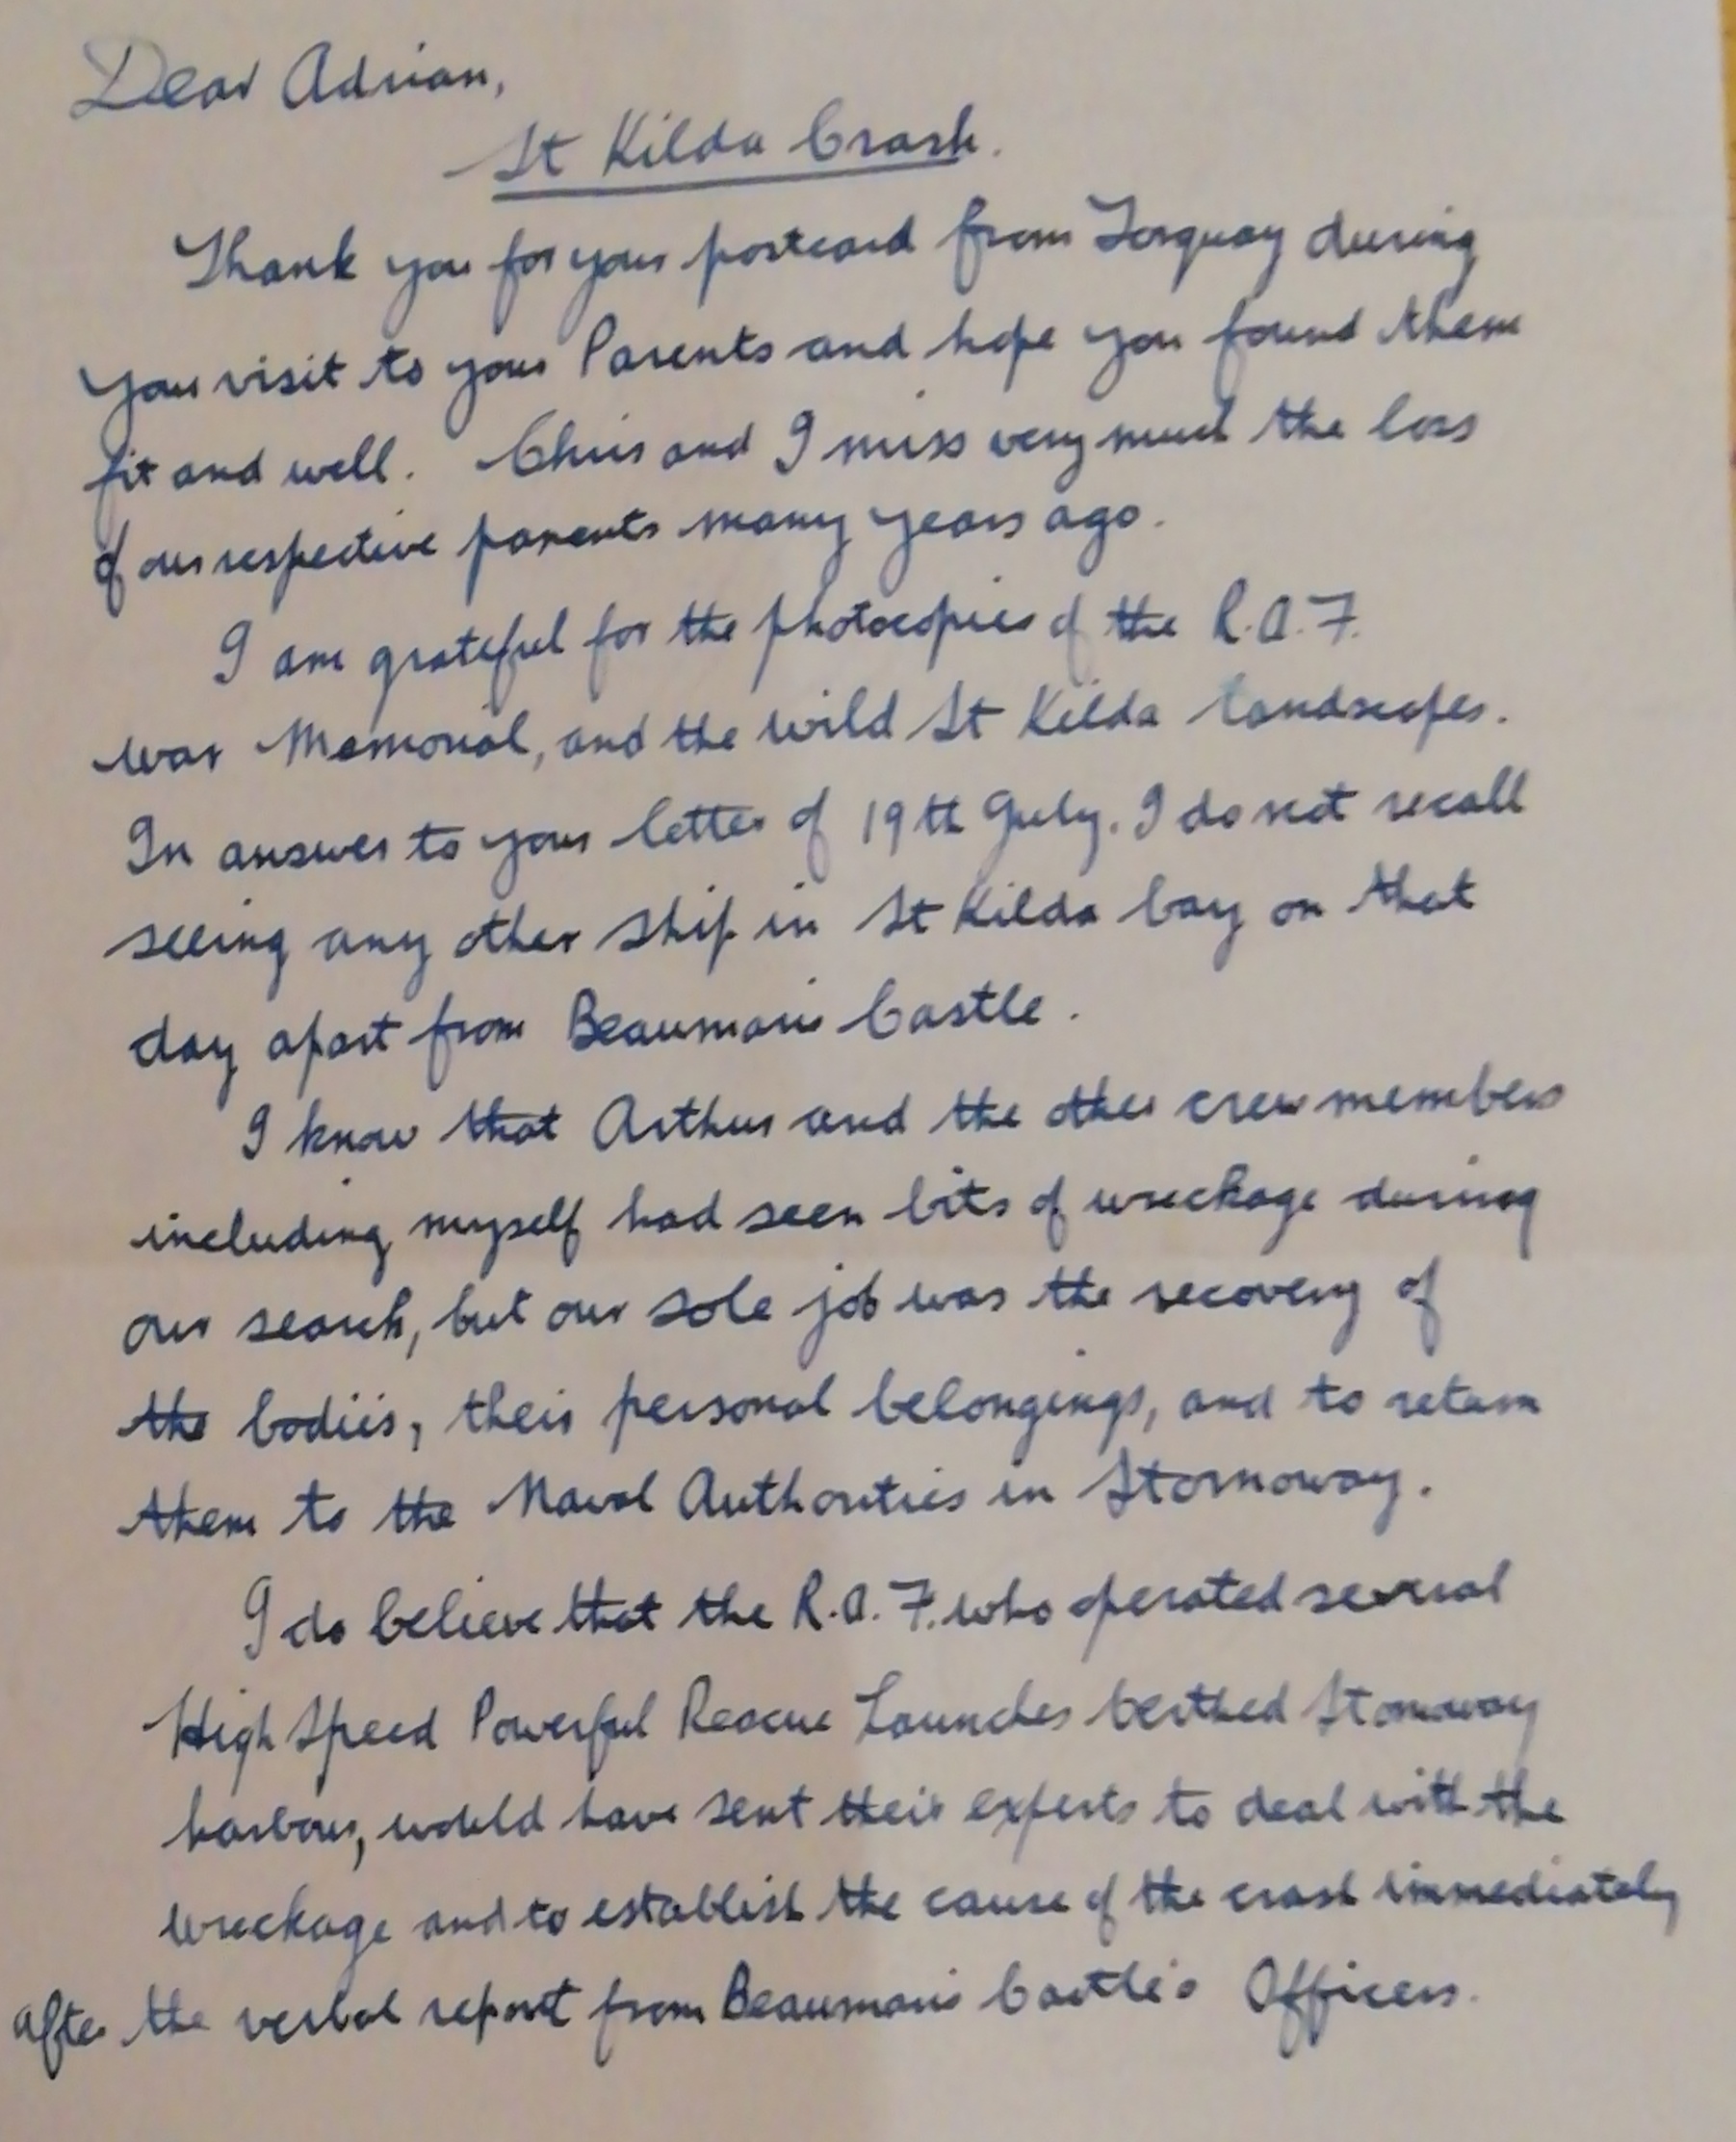 Dear Adrian,
St Kilda Crash.
Thank you for your postcard from Torquay during
your visit to your Parents and hope you found them
fit and well. Chris and I miss very much the loss
of our respective parents many years ago.
I am grateful for the photocopies of the R.A.F.
war Memorial, and the wild St Kilda landscapes.
In answer to your letter of 19th July. I do not recall
seeing any other ship in St Kilda bay on that
day apart from Beaumaris Castle.
I know that Arthur and the other crew members
including myself had seen bits of wreckage during
our search, but our sole job was the recovery of
the bodies, their personal belongings, and to return
them to the Naval Authorities in Stornoway.
I do believe that the R.A.F. who operated several
High Speed Powerful Rescue Launches berthed Stornoway
harbour, would have sent their experts to deal with the
wreckage and to establish the cause of the crash immediately
after the verbal report from Beaumaris Castle's Officers.